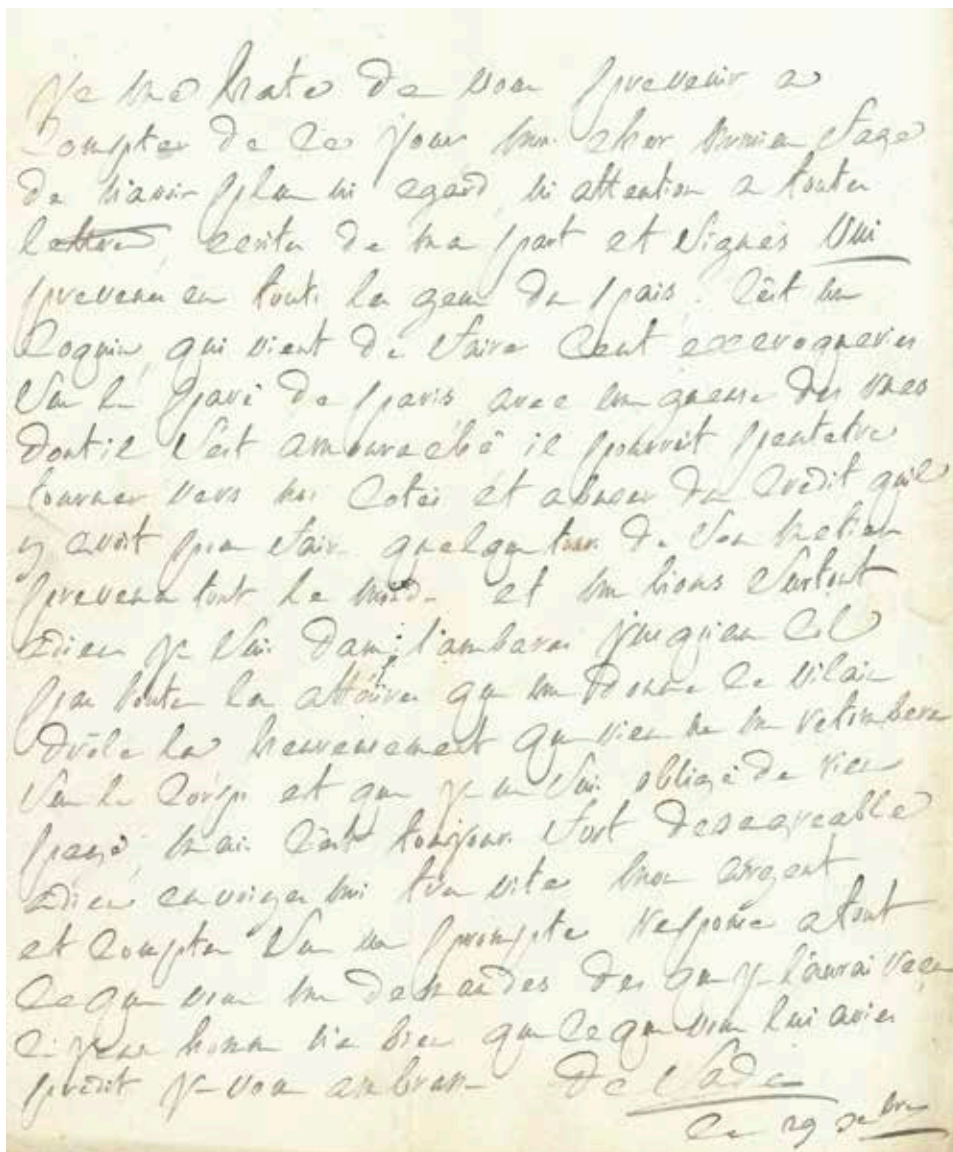 Je me hate de vous prevenir a
compter de ce jour mon cher
de n'avoir plus ni egard, ni attention a toutes
lettres, ecrites de ma part et signés
prevenes en touts les gens du pais, c'est un
coquin, qui vient de faire cent excroqueries
sur le pavé de paris avec une gueuse des rues
dont il s'est amouraché il pourroit peutetre
tourner vers nos cotés et abuser du credit quil
y avoit pour faire quelque tour de son metier
prevenes tout le monde et surtout
adieu je suis dans l'ambaras jusqu'au col
par toutes les affaires que me donne ce vilain
drole la heureusement que rien ne me retombera
sur le corps et que je ne suis obligé de rien
payé, mais c'est toujours fort desagreable
adieu envoiyes moi tres vite mon argent
et comptes sur une prompte response a tout
ce que vous me demandes des que je l'aurai recu
ce jeune homme n'a bien que ce que vous lui avies
predit je vous ambrasse De Sade
ce 29